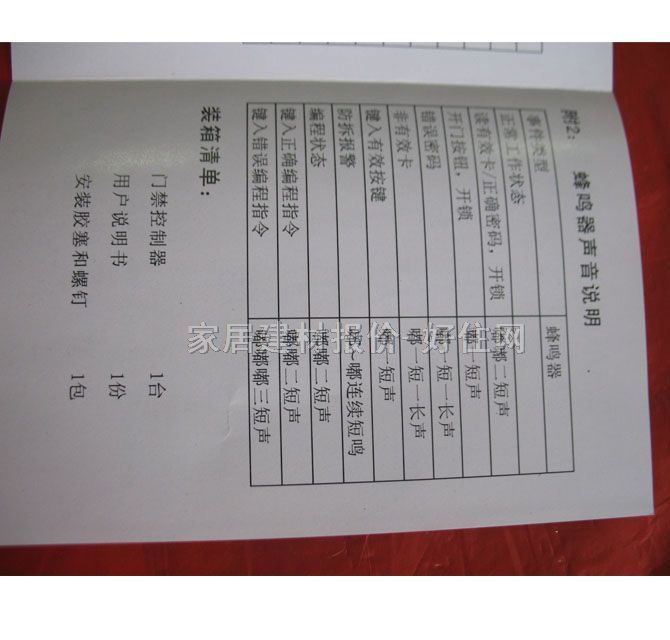 附2： 蜂鸣器声音说明
事件类型 蜂鸣器
正常工作状态
读有效卡/正确密码，开锁 嘟嘟二短声
开门按钮，开锁 嘟一短声
错误密码 嘟一短一长声
非有效卡 嘟一短一长声
键入有效按键 嘟一短声
防拆报警 嘟~嘟连续短鸣
编程状态 嘟嘟二短声
键入正确编程指令 嘟嘟二短声
键入错误编程指令 嘟嘟嘟三短声
装箱清单：
门禁控制器 1台
用户说明书 1份
安装胶塞和螺钉 1包
家居建材报价 好住网